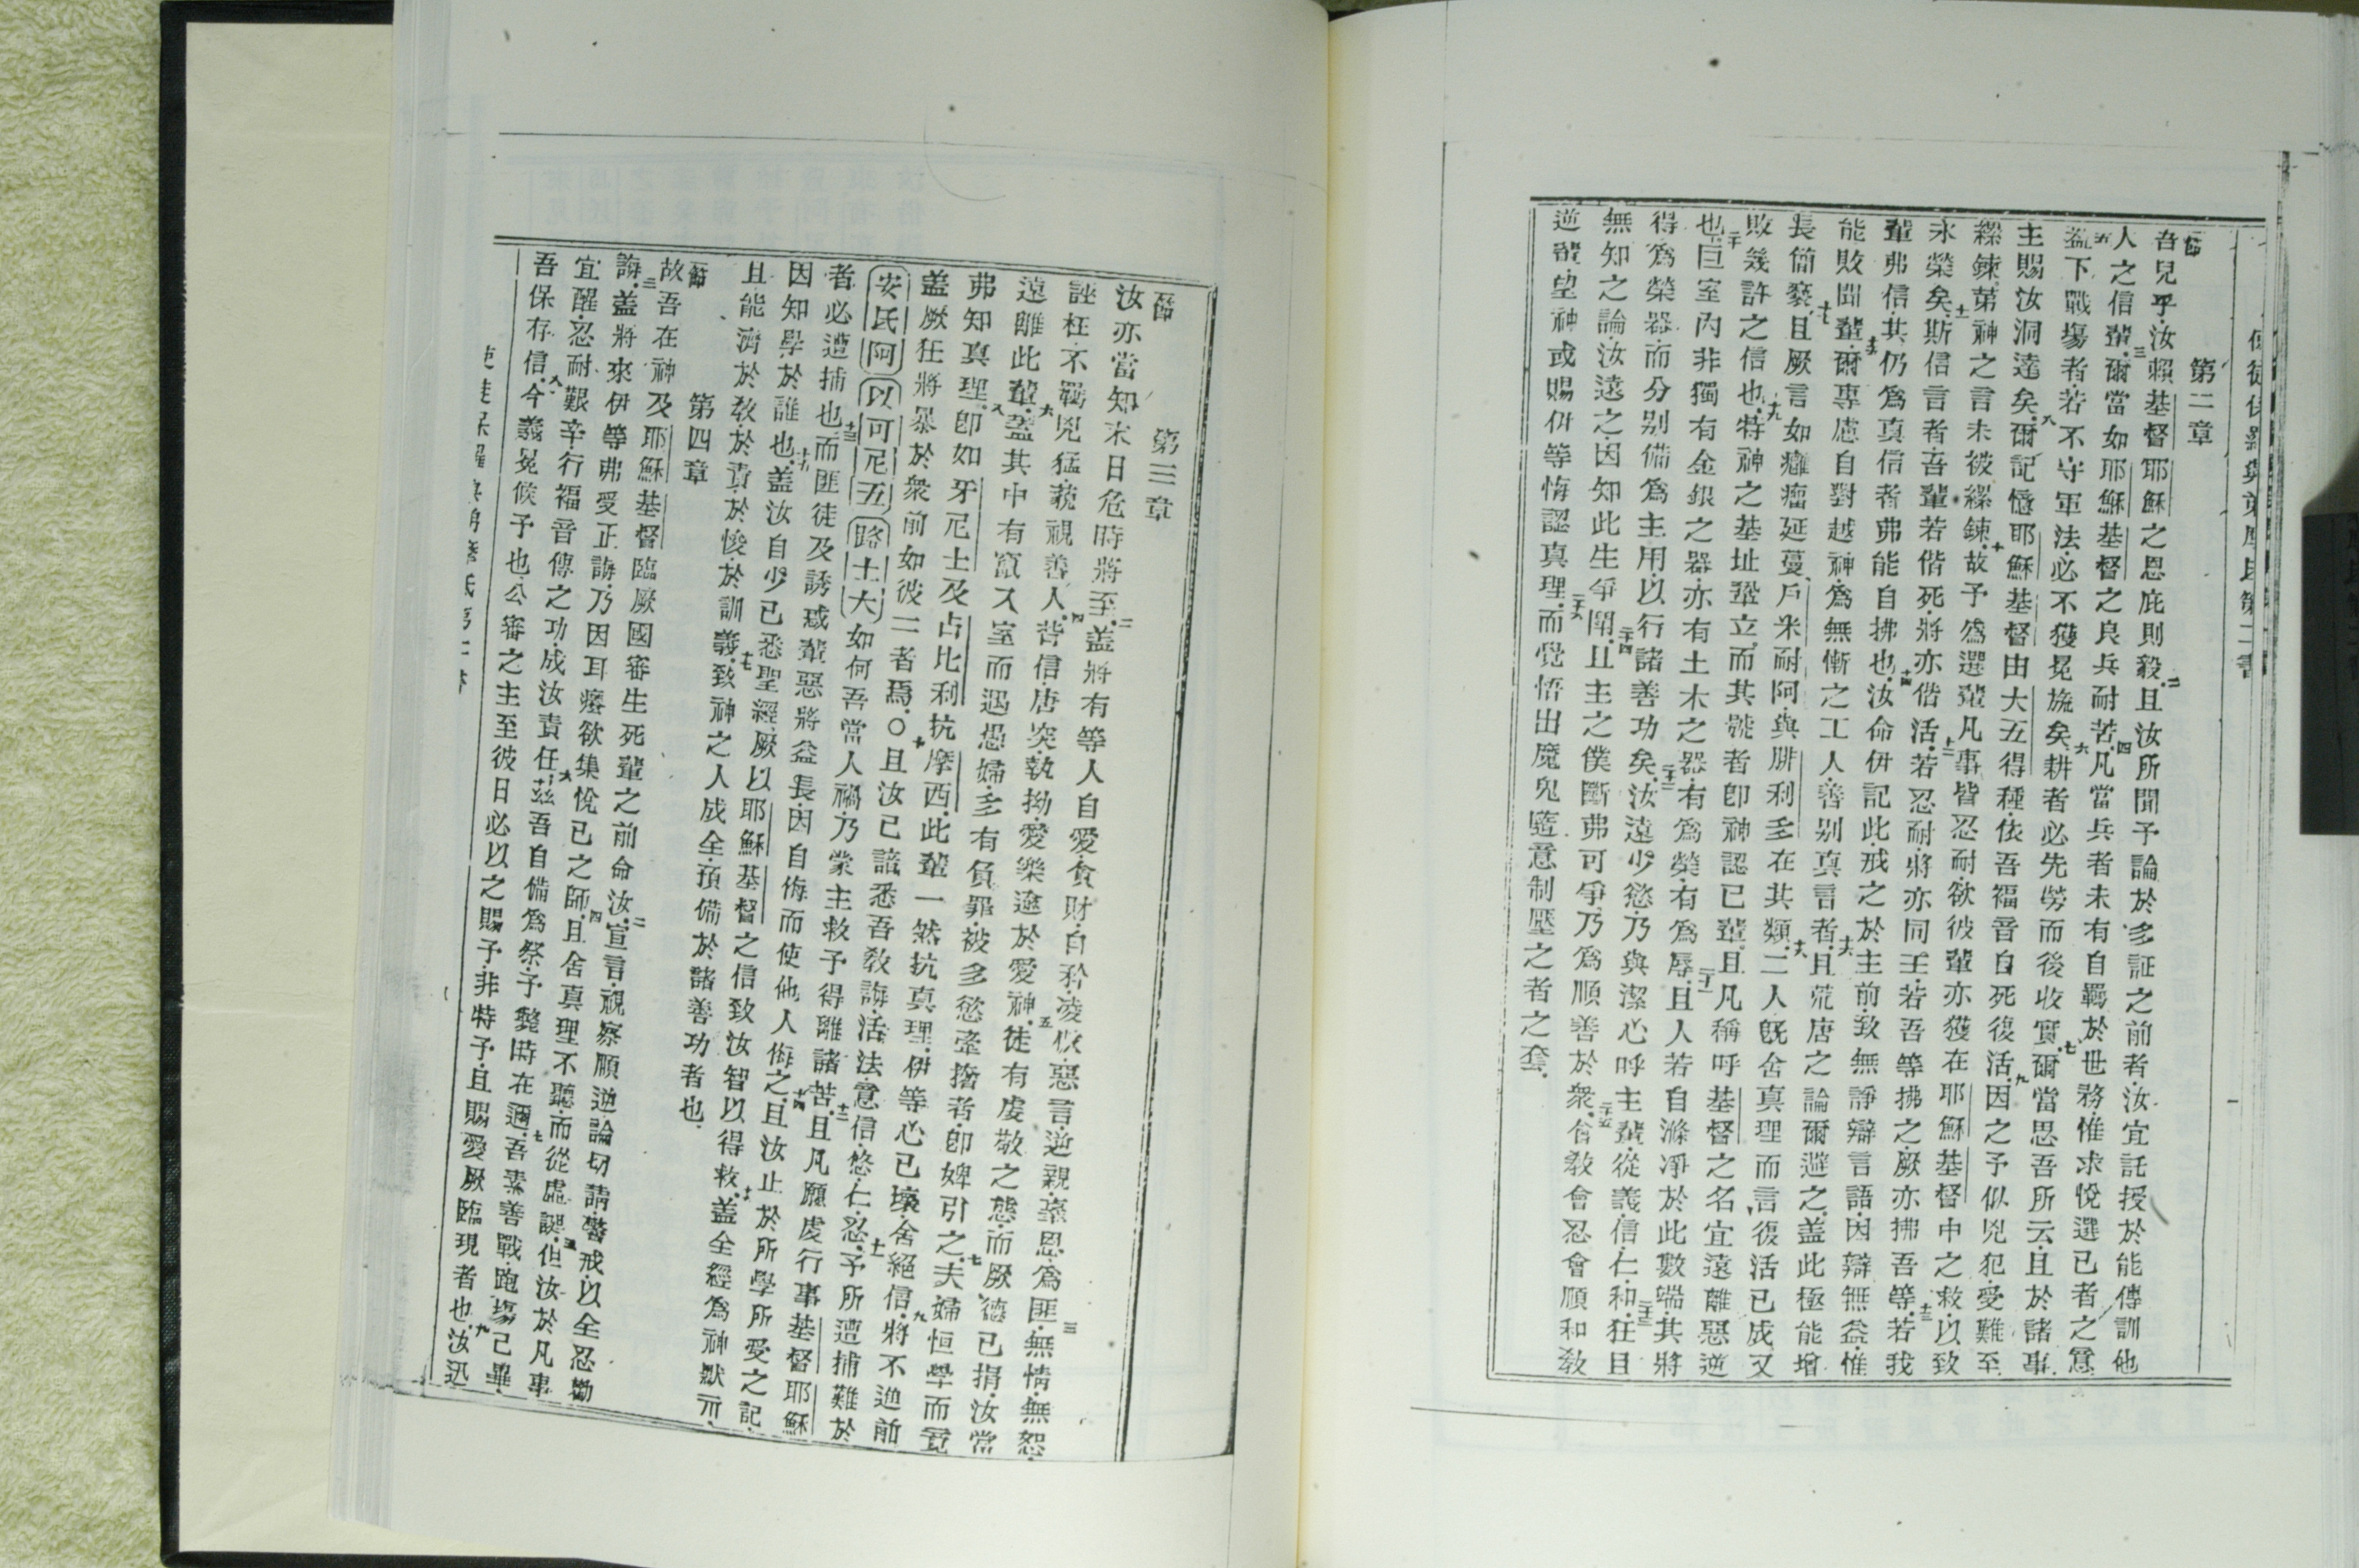 第二章
節
吾兒乎汝賴基督耶穌之恩庇則毅二且汝所聞予論於多証之前者汝宜託授於能傳訓他
人之信輩三爾當如耶穌基督之良兵耐苦四凡當兵者未有自羈於世務惟求悅選己者之意
五下戰塲者若不守軍法必不獲冕旒矣六耕者必先勞而後收實七爾當思吾所云且於諸事
主賜汝洞達矣八爾記憶耶穌基督由大五得種依吾福音自死復活九因之予似兇犯受難至
縲鍊第神之言未被縲鍊十故予為選輩凡事皆忍耐欲彼輩亦獲在耶穌基督中之救以致
永榮矣十一斯信言者吾輩若偕死將亦偕活十二若忍耐將亦同王若吾等拂之厥亦拂吾等十三若我
輩弗信其仍為真信者弗能自拂也十四汝命伊記此戒之於主前致無諍辯言語因辯無益惟
能敗聞輩十五爾專慮自對越神為無慚之工人善别真言者十六且荒唐之論爾避之盖此極能增
長簡褻十七且厥言如癰瘤延蔓戶米耐阿與腓利多在其類十八二人旣舍真理而言復活已成又
敗幾許之信也十九特神之基址鞏立而其號者卽神認己輩且凡稱呼基督之名宜遠離惡逆
也二十巨室內非獨有金銀之器亦有土木之器有為榮有為辱二十一且人若自滌凈於此數端其將
得為榮器而分别備為主用以行諸善功矣二十二汝遠少慾乃與潔心呼主輩從義信仁和二十三狂且
無知之論汝遠之因知此生爭鬧二十四且主之僕斷弗可爭乃為順善於衆二十五食教會忍會順和敎
逆輩望神或賜伊等悔認真理二十六而覺悟出魔鬼隨意制壓之者之套
第三章
節
汝亦當知末日危時將至二盖將有等人自愛貪財自矜凌傲惡言逆親辜恩為匪三無情無恕
誣枉不羈兇猛藐視善人四背信唐突執拗愛樂逾於愛神五徒有虔敬之態而厥德已捐汝當
遠離此輩六盖其中有竄入室而迷愚婦多有負罪被多慾牽擕者卽婢引之七夫婦恒學而竟
弗知真理八卽如牙尼士及占比利抗摩西此輩一然抗真理伊等心已壞舍絕信九將不進前
盖厥狂將暴於衆前如彼二者焉〇十且汝已諳悉吾敎誨活法意信悠仁忍十一予所遭捕難於
安氏阿以可尼五路士大如何吾當人禍乃蒙主救予得離諸苦十二且凡願虔行事基督耶穌
者必遭捕也十三而匪徒及誘惑輩惡將益長因自侮而使他人侮之十四且汝止於所學所受之記
因知學於誰也十五盖汝自少已悉聖經厥以耶穌基督之信致汝智以得救十六盖全經為神默示
且能濟於敎於責於悛於訓義十七致神之人成全預備於諸善功者也
第四章
節
故吾在神及耶穌基督臨厥國審生死輩之前命汝二宣言視察順逆論切請警戒以全忍勸
誨三盖將來伊等弗受正誨乃因耳癢欲集悅己之師四且舍真理不聽而從虛誕五但汝於凡事
宜醒忍耐艱辛行福音傳之功成汝責任六茲吾自備為祭予斃時在邇七吾業善戰跑塲已畢
吾保存信八今義冕候予也公審之主至彼日必以之賜予非特予且賜愛厥臨現者也九汝迅